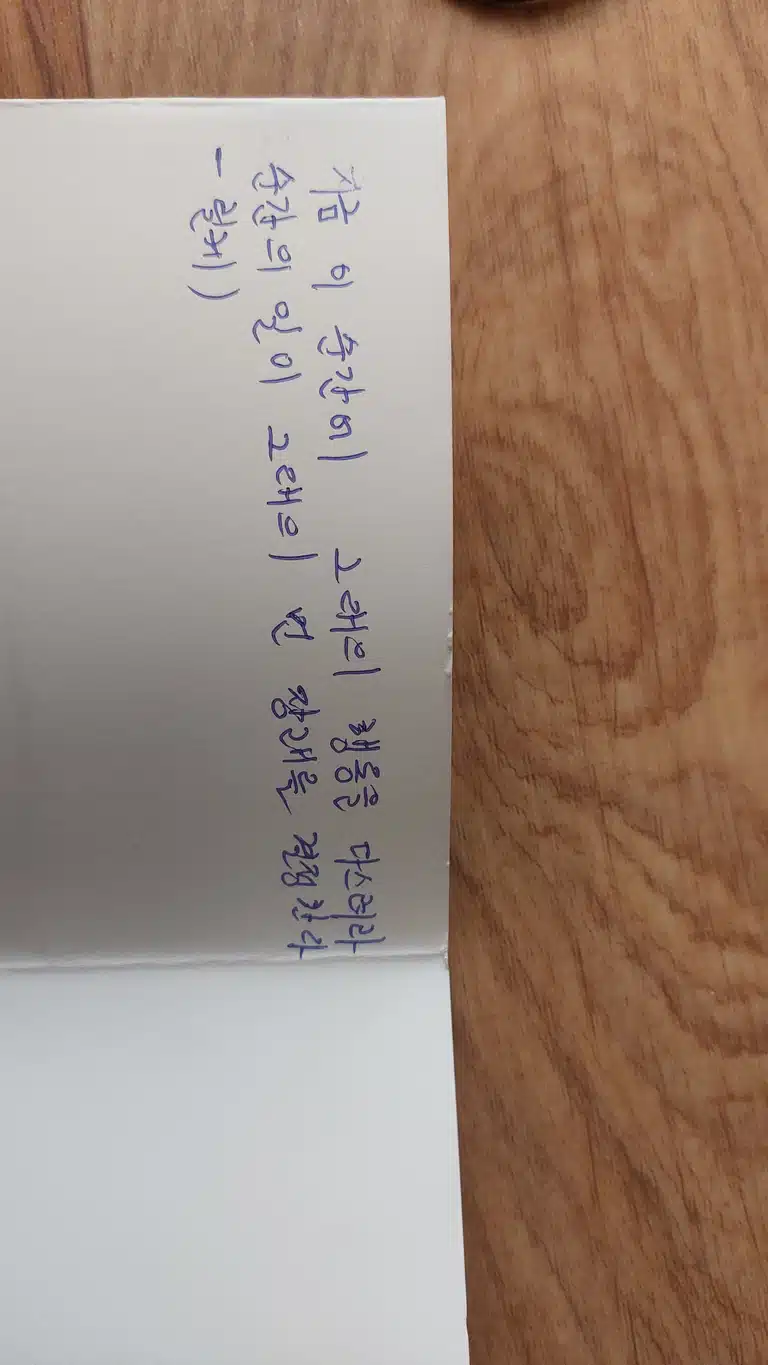 지금 이 순간이 그대의 행동을 다스리라
순간의 일이 그대의 먼 장래를 결정한다
- 릴케)